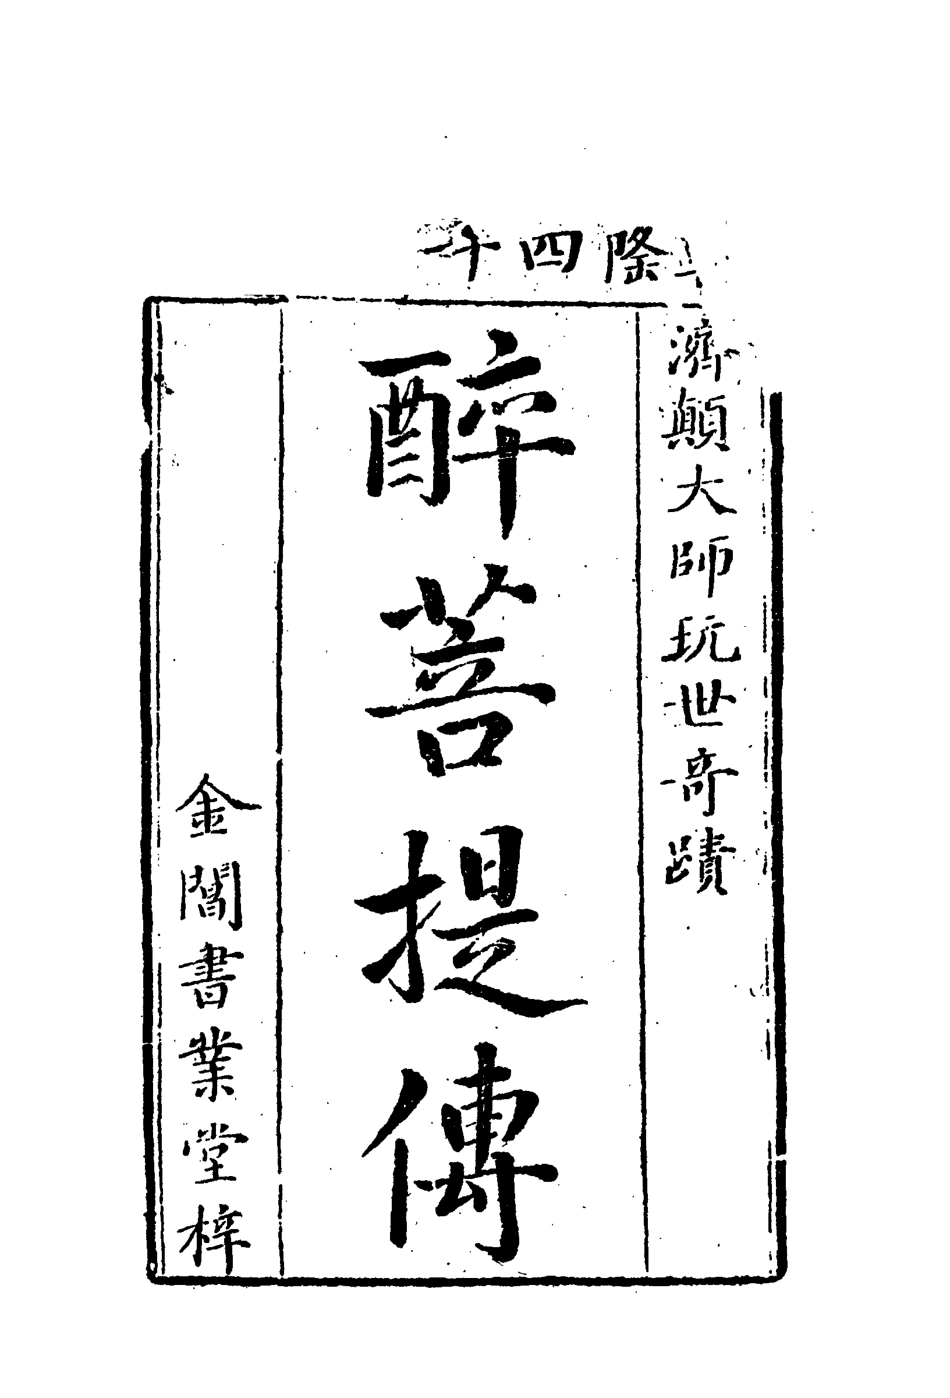 隆四十
濟顛大師玩世奇蹟
醉菩提傳
金閶書業堂梓